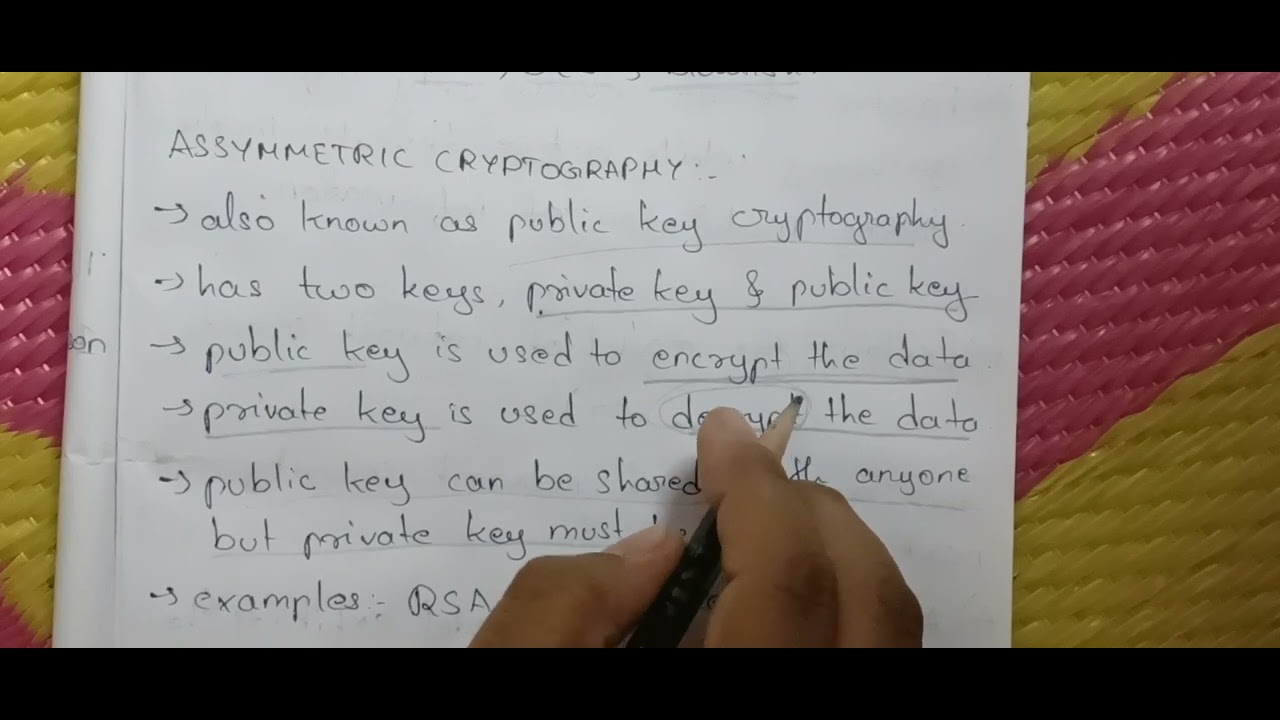 ASSYMMETRIC CRYPTOGRAPHY :-
→ also known as public key cryptography.
→ has two keys, private key & public key
→ public key is used to encrypt the data.
→ private key is used to decrypt the data
→ public key can be shared anyone
but private key must
→ examples:- RSA